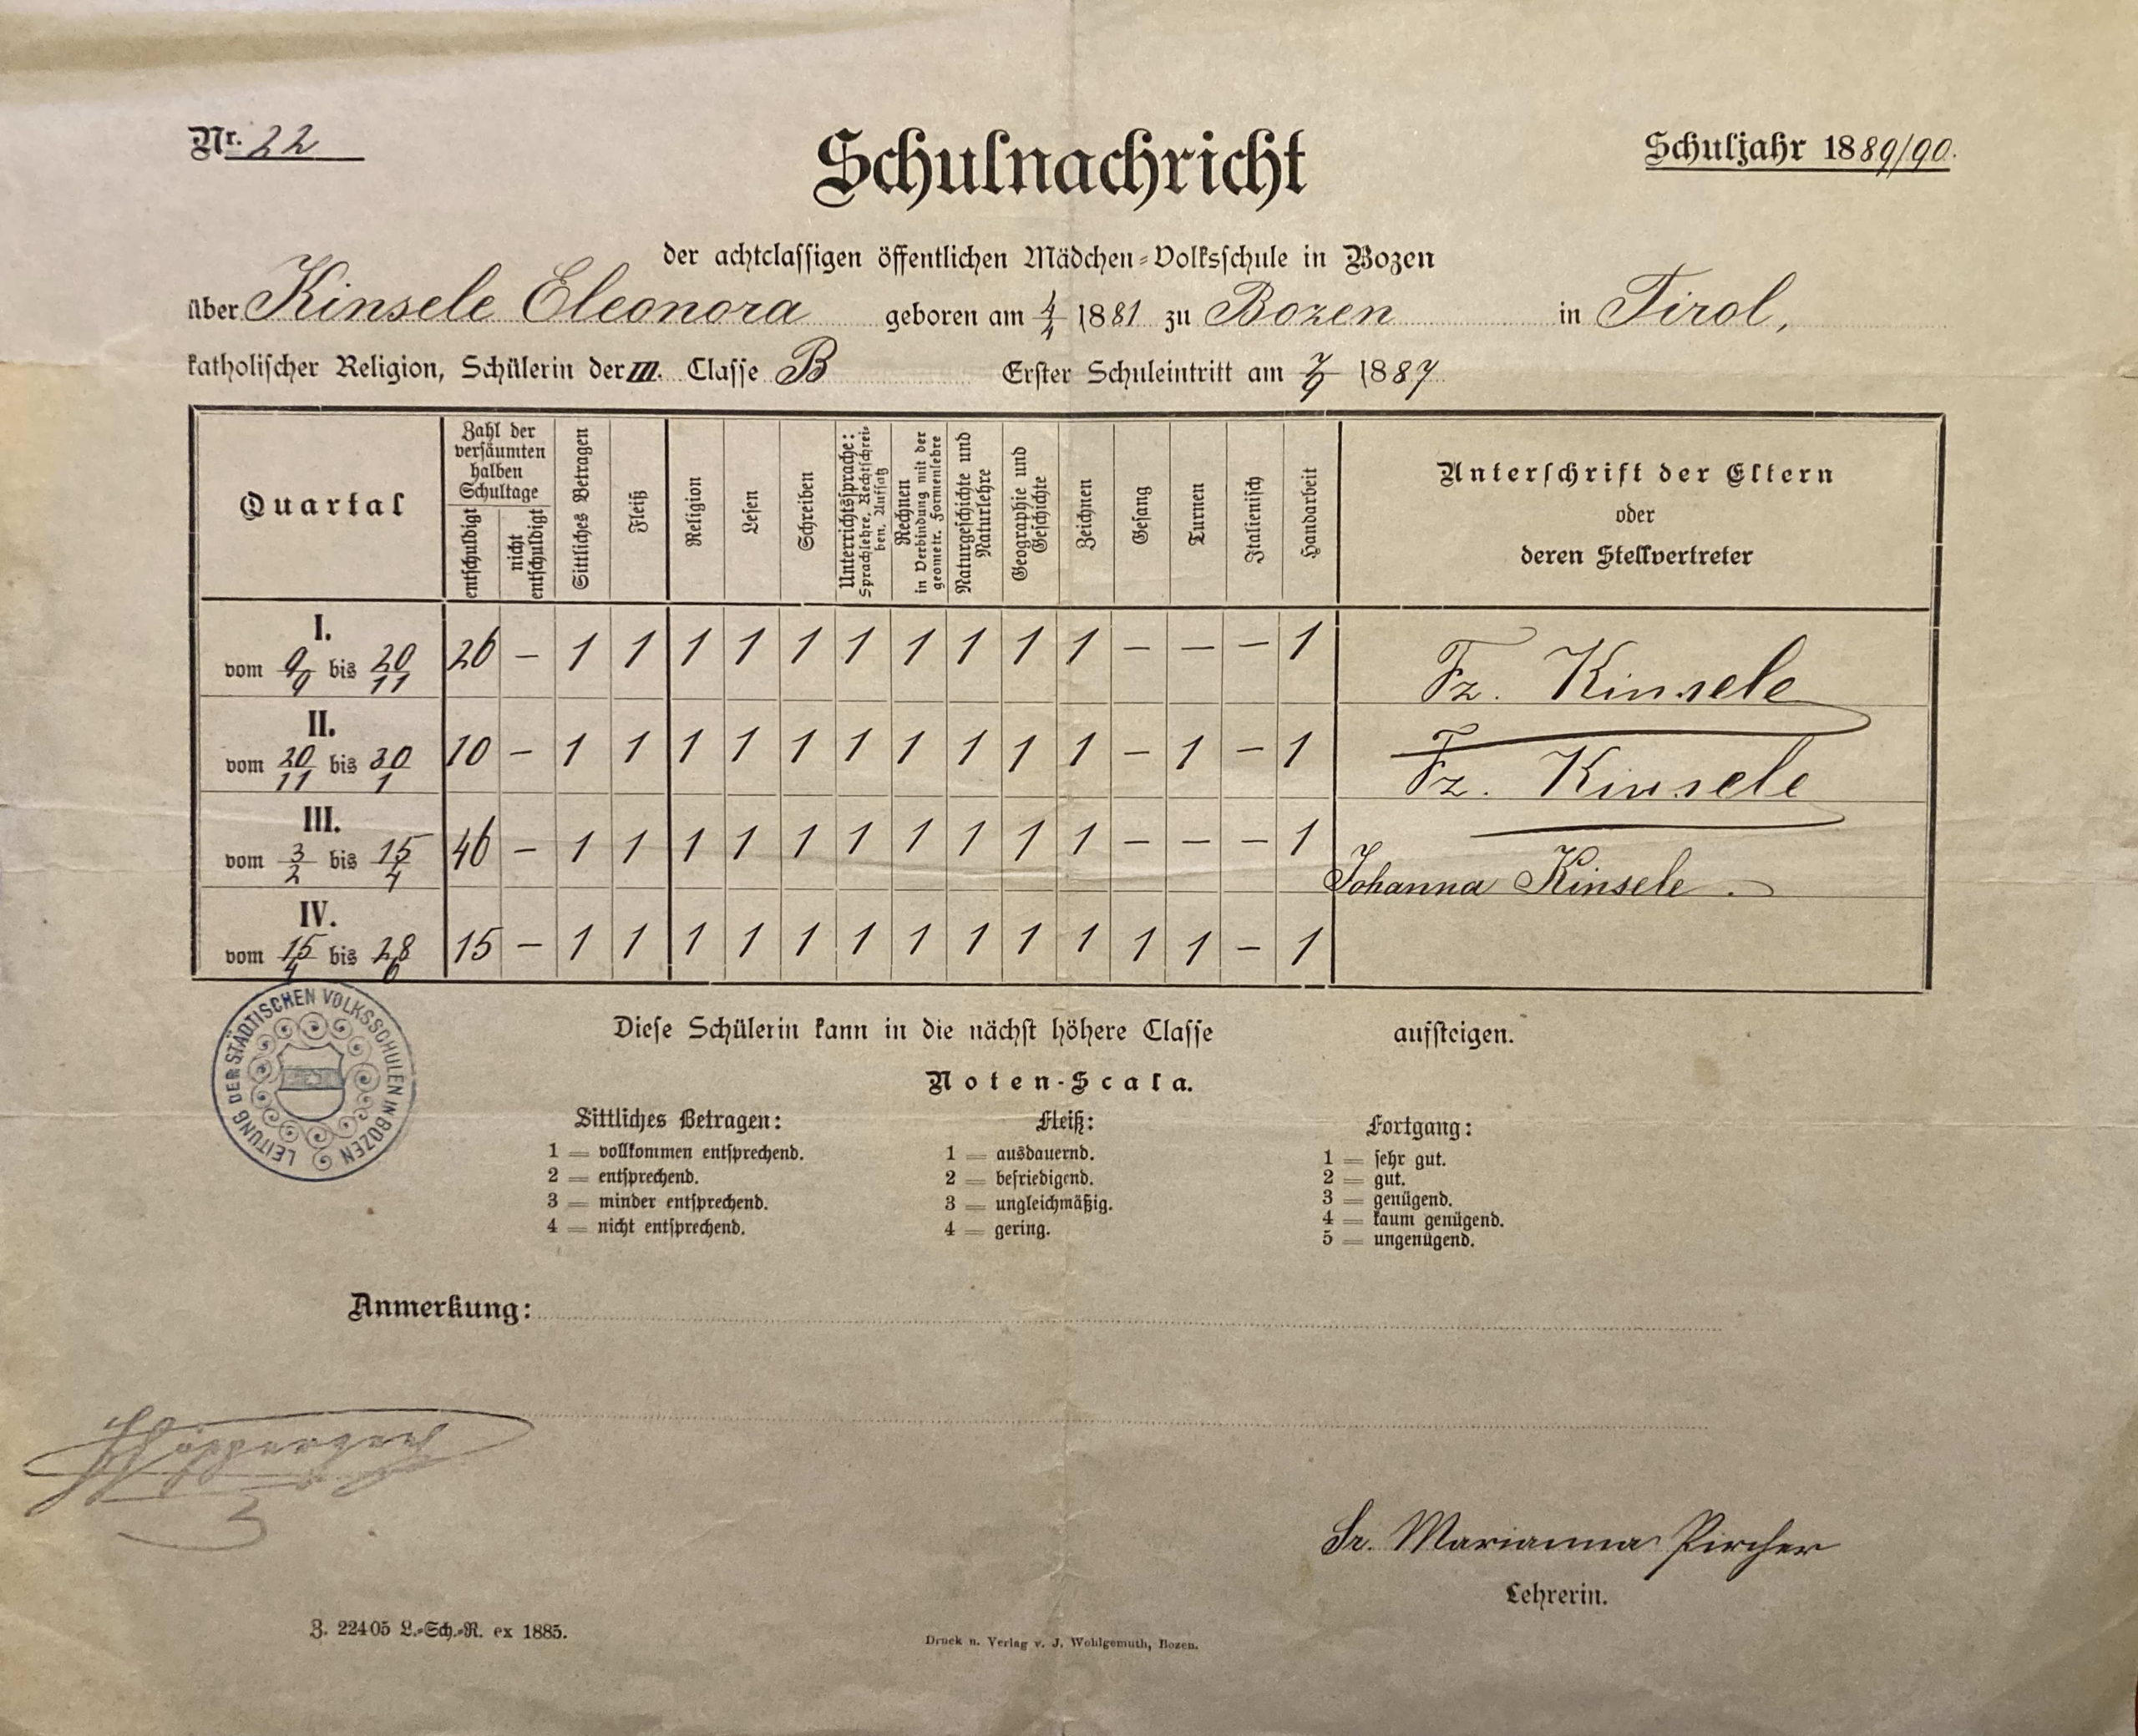 Nr. 22
Schuljahr 1889/90.
Schulnachricht
der achtclassigen öffentlichen Mädchen-Volksschule in Bozen
über Kinsele Eleonora geboren am 4/4 1881 zu Bozen in Tirol,
katholischer Religion, Schülerin der III. Classe B Erster Schuleintritt am 7/9 1887
Quartal
Zahl der versäumten halben Schultage
entschuldigt
nicht entschuldigt
Sittliches Betragen
Fleiß
Religion
Lesen
Schreiben
Unterrichtssprache: Sprachlehre, Rechtschreiben, Aufsatz
Rechnen in Verbindung mit der geometr. Formenlehre
Naturgeschichte und Naturlehre
Geographie und Geschichte
Zeichnen
Gesang
Turnen
Italienisch
Handarbeit
Unterschrift der Eltern
oder
deren Stellvertreter
I.
vom 9/9 bis 20/11 26 – 1 1 1 1 1 1 1 1 1 1 – – – 1 Fz. Kinsele
II.
vom 20/11 bis 30/1 10 – 1 1 1 1 1 1 1 1 1 1 – 1 – 1 Fz. Kinsele
III.
vom 3/2 bis 15/4 46 – 1 1 1 1 1 1 1 1 1 1 – – – 1 Johanna Kinsele.
IV.
vom 15/4 bis 28/6 15 – 1 1 1 1 1 1 1 1 1 1 1 1 – 1
LEITUNG DER STÄDTISCHEN VOLKSSCHULEN IN BOZEN
Diese Schülerin kann in die nächst höhere Classe aufsteigen.
Noten-Scala.
Sittliches Betragen: Fleiß: Fortgang:
1 = vollkommen entsprechend. 1 = ausdauernd. 1 = sehr gut.
2 = entsprechend. 2 = befriedigend. 2 = gut.
3 = minder entsprechend. 3 = ungleichmäßig. 3 = genügend.
4 = nicht entsprechend. 4 = gering. 4 = kaum genügend.
5 = ungenügend.
Anmerkung:
Sr. Marianna Pircher
Lehrerin.
Z. 22405 L.-Sch.-R. ex 1885.
Druck u. Verlag v. J. Wohlgemuth, Bozen.